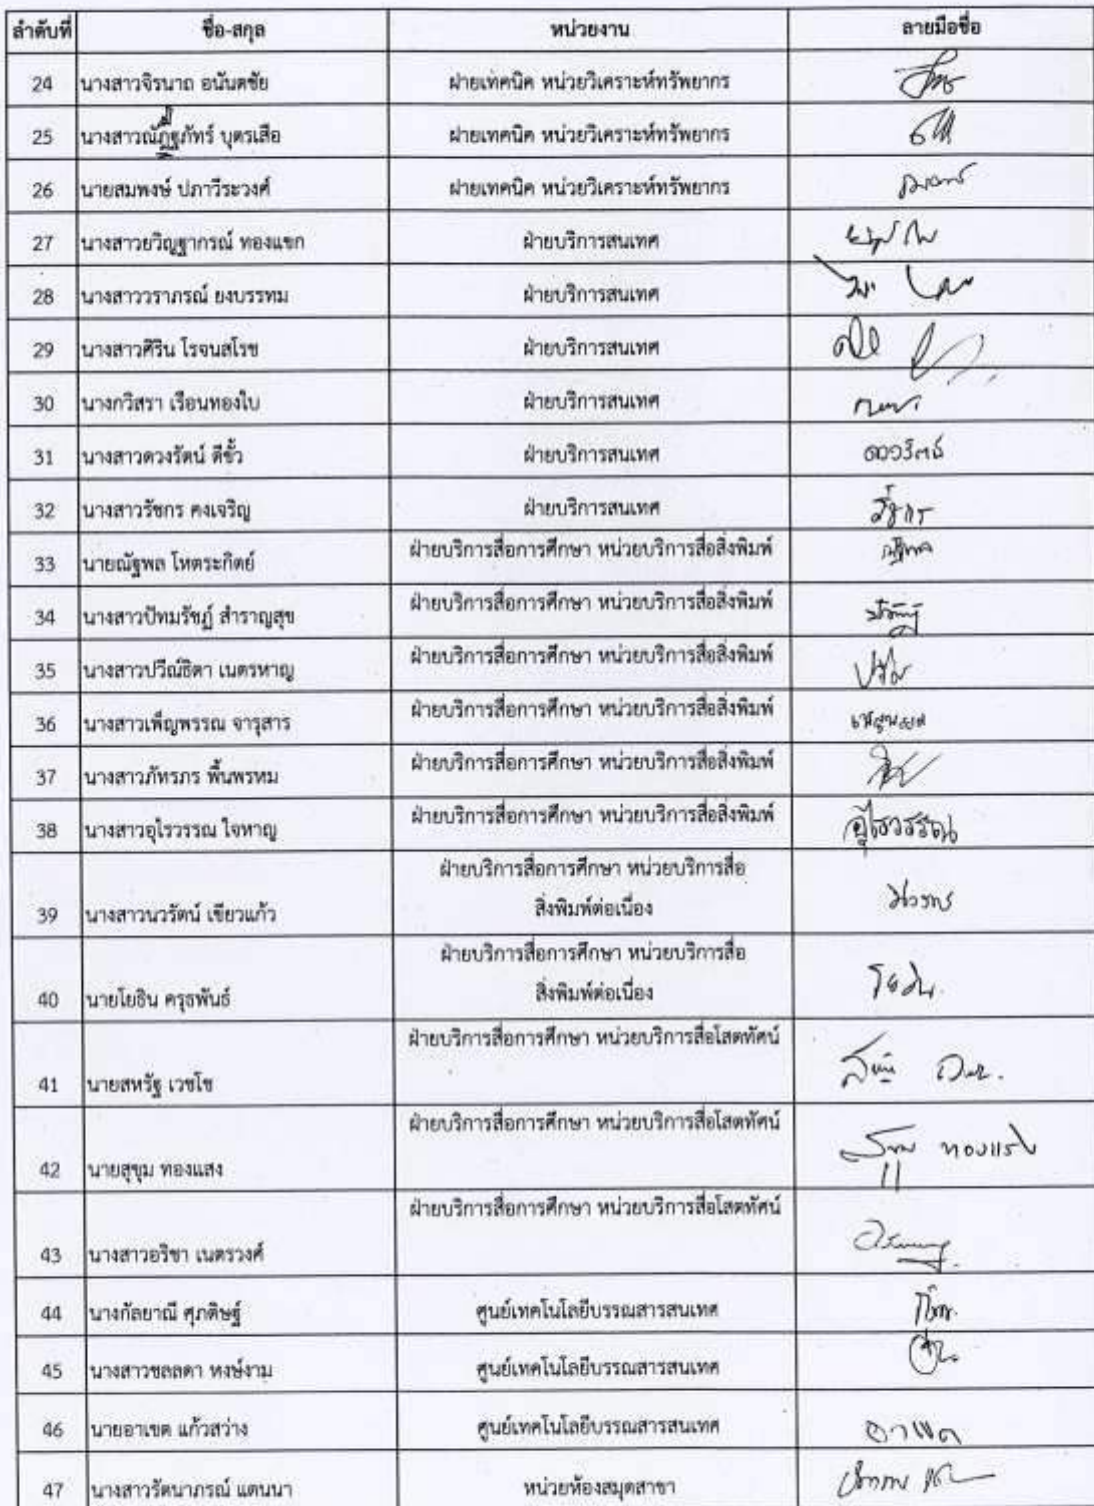 ลำดับที่ ชื่อ-สกุล หน่วยงาน ลายมือชื่อ
24 นางสาวจิรนาถ อนันตชัย ฝ่ายเทคนิค หน่วยวิเคราะห์ทรัพยากร
25 นางสาวณัฏฐิฐภัทร์ บุตรเสือ ฝ่ายเทคนิค หน่วยวิเคราะห์ทรัพยากร
26 นายสมพงษ์ ปภาวีระวงศ์ ฝ่ายเทคนิค หน่วยวิเคราะห์ทรัพยากร
27 นางสาวยวิญฐากรณ์ ทองแขก ฝ่ายบริการสนเทศ
28 นางสาววราภรณ์ ยงบรรทม ฝ่ายบริการสนเทศ
29 นางสาวศิริน โรจนสโรช ฝ่ายบริการสนเทศ
30 นางกวิสรา เรือนทองใบ ฝ่ายบริการสนเทศ
31 นางสาวดวงรัตน์ ดีขั้ว ฝ่ายบริการสนเทศ ดวงรัตน์
32 นางสาวรัชกร คงเจริญ ฝ่ายบริการสนเทศ รัชกร
33 นายณัฐพล โหตระกิตย์ ฝ่ายบริการสื่อการศึกษา หน่วยบริการสื่อสิ่งพิมพ์ ณัฐพล
34 นางสาวปัทมรัชฎ์ สำราญสุข ฝ่ายบริการสื่อการศึกษา หน่วยบริการสื่อสิ่งพิมพ์
35 นางสาวปวีณ์ธิดา เนตรหาญ ฝ่ายบริการสื่อการศึกษา หน่วยบริการสื่อสิ่งพิมพ์
36 นางสาวเพ็ญพรรณ จารุสาร ฝ่ายบริการสื่อการศึกษา หน่วยบริการสื่อสิ่งพิมพ์ เพ็ญพรรณ
37 นางสาวภัทรภร พื้นพรหม ฝ่ายบริการสื่อการศึกษา หน่วยบริการสื่อสิ่งพิมพ์
38 นางสาวอุไรวรรณ ใจหาญ ฝ่ายบริการสื่อการศึกษา หน่วยบริการสื่อสิ่งพิมพ์ อุไรวรรณ
ฝ่ายบริการสื่อการศึกษา หน่วยบริการสื่อ
39 นางสาวนวรัตน์ เขียวแก้ว สิ่งพิมพ์ต่อเนื่อง
ฝ่ายบริการสื่อการศึกษา หน่วยบริการสื่อ
40 นายโยธิน ครุธพันธ์ สิ่งพิมพ์ต่อเนื่อง โยธิน
ฝ่ายบริการสื่อการศึกษา หน่วยบริการสื่อโสตทัศน์
41 นายสหรัฐ เวชโช
ฝ่ายบริการสื่อการศึกษา หน่วยบริการสื่อโสตทัศน์
42 นายสุขุม ทองแสง สุขุม ทองแสง
ฝ่ายบริการสื่อการศึกษา หน่วยบริการสื่อโสตทัศน์
43 นางสาวอริชา เนตรวงศ์
44 นางกัลยาณี ศุภดิษฐ์ ศูนย์เทคโนโลยีบรรณสารสนเทศ
45 นางสาวชลลดา หงษ์งาม ศูนย์เทคโนโลยีบรรณสารสนเทศ
46 นายอาเขต แก้วสว่าง ศูนย์เทคโนโลยีบรรณสารสนเทศ อาเขต
47 นางสาวรัตนาภรณ์ แตนนา หน่วยห้องสมุดสาขา